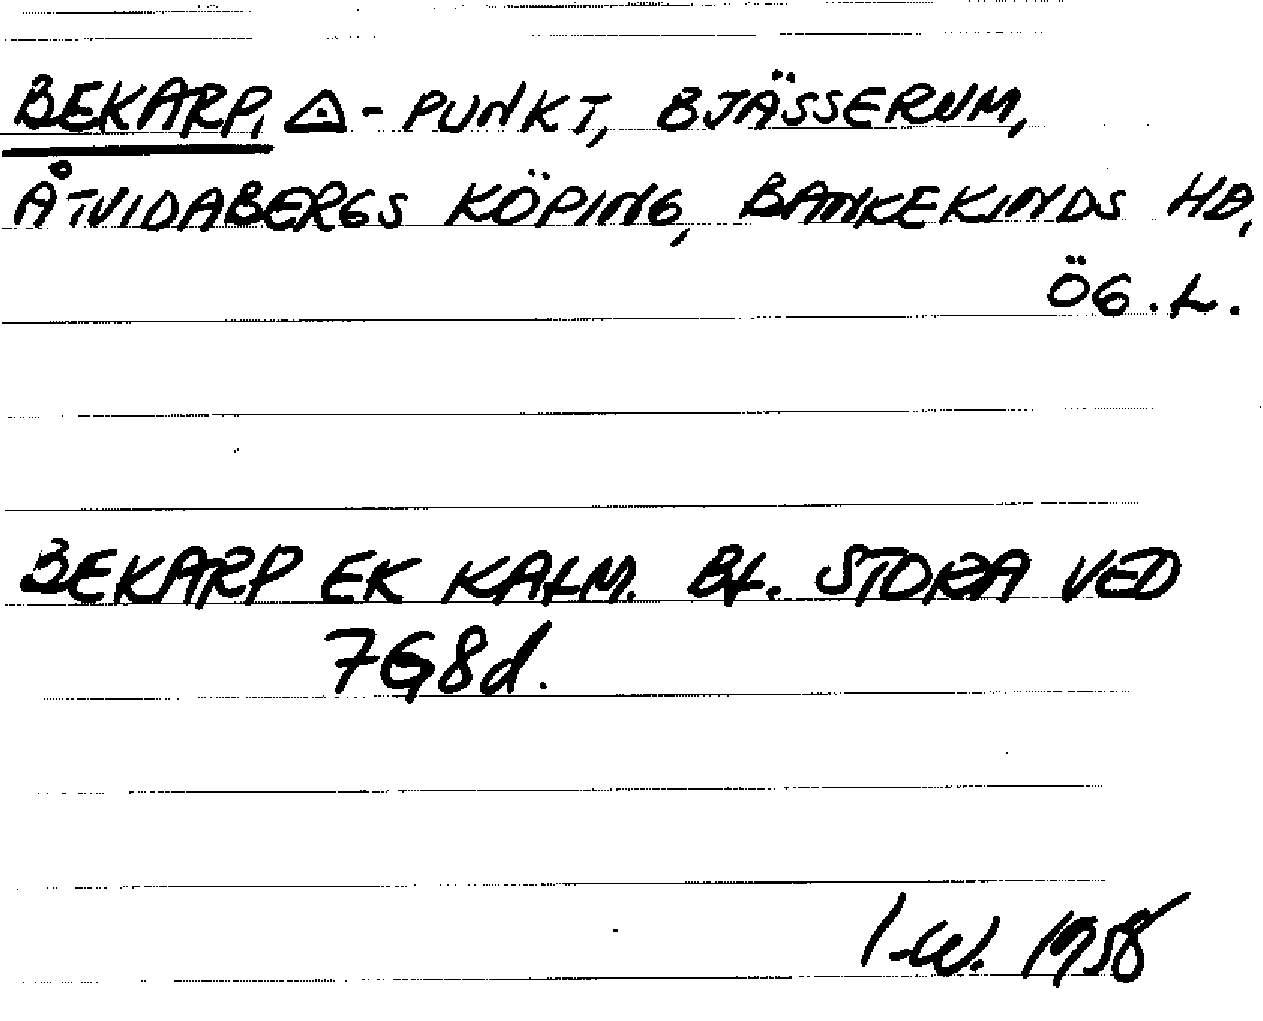 BEKARP, ◬-PUNKT, BJÄSSERUM,
ÅTVIDABERGS KÖPING, BANKEKINDS HD,
ÖG. L.
BEKARP EK KALM. BL. STORA VED
7G8d.
I-W. 1958